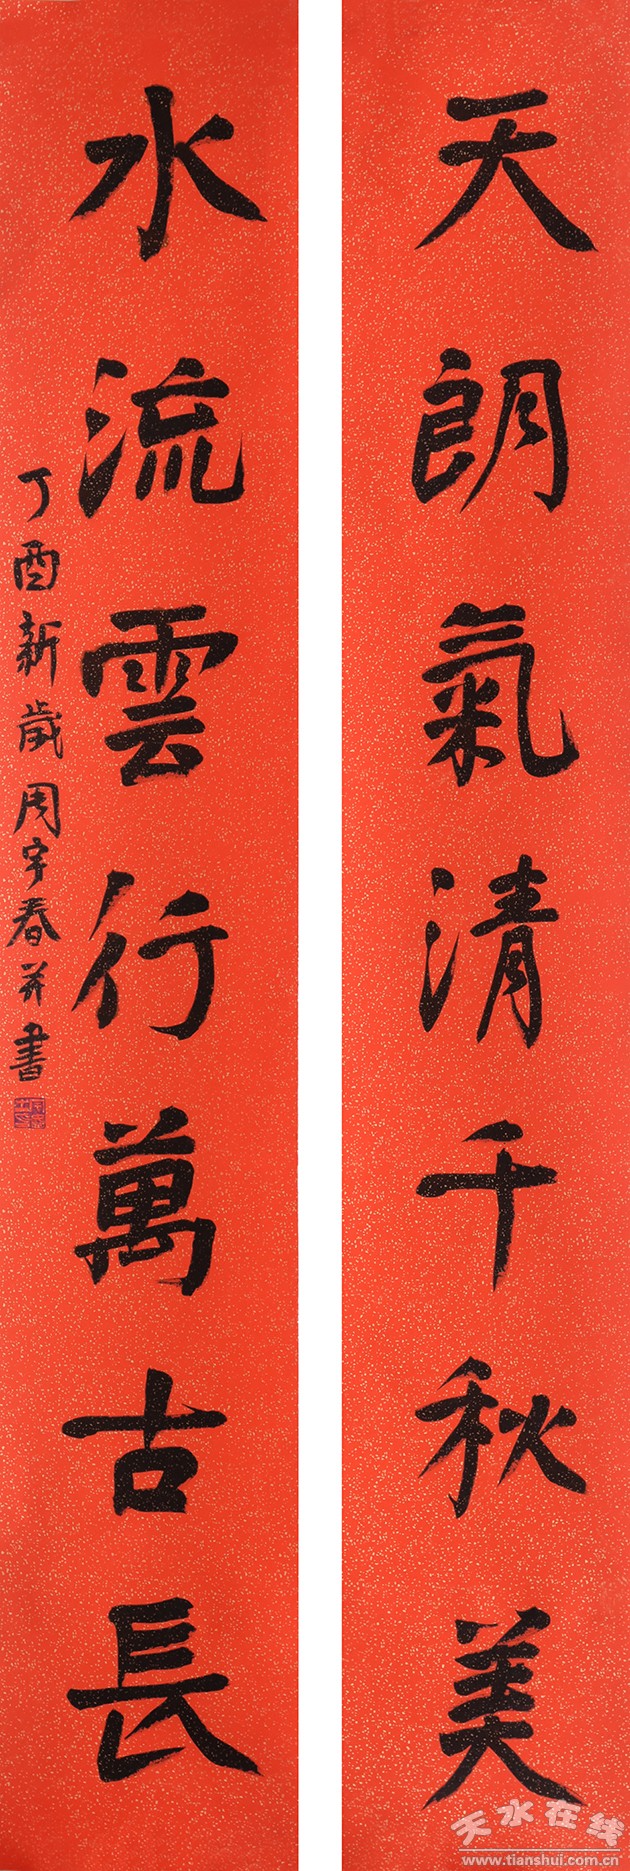 天朗氣清千秋美
水流雲行萬古長
丁酉新歲周宇春并書
天水在线
www.tianshui.com.cn